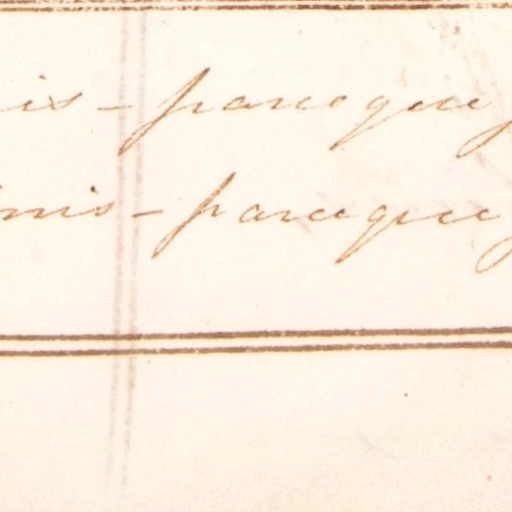 is - parceque
mis - parceque